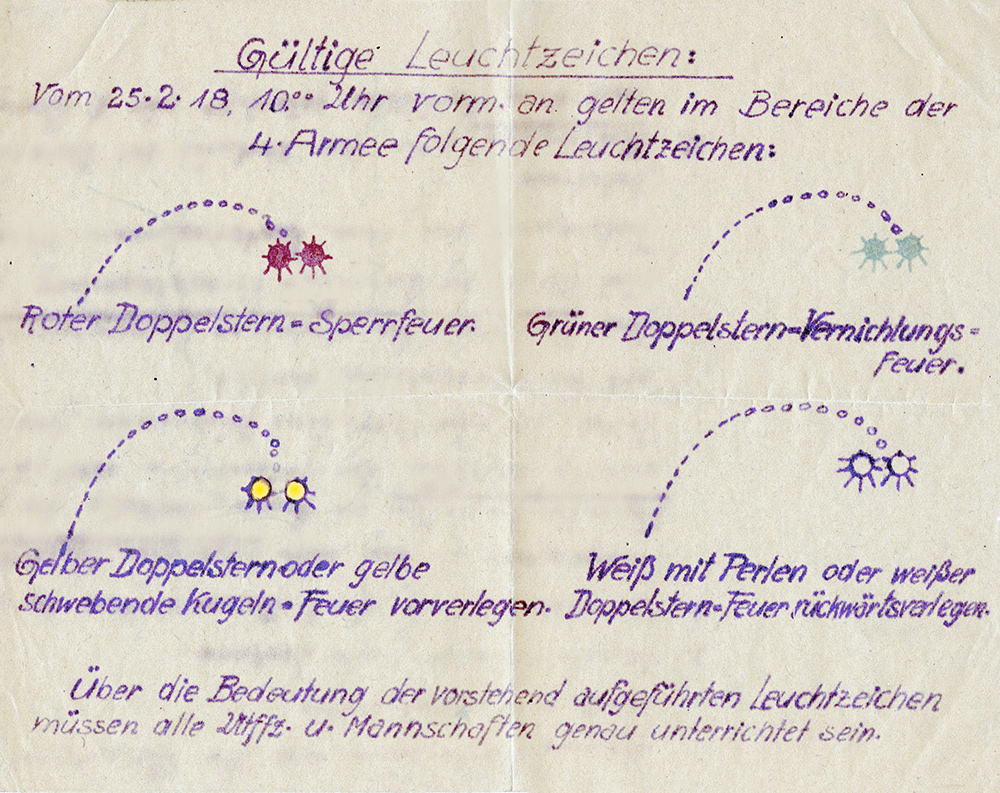 Gültige Leuchtzeichen:
Vom 25·2· 18, 10°° Uhr vorm. an gelten im Bereiche der
4·Armee folgende Leuchtzeichen:
Roter Doppelstern = Sperrfeuer.
Grüner Doppelstern=Vernichtungs=
feuer.
Gelber Doppelstern oder gelbe
schwebende Kugeln = Feuer vorverlegen.
Weiß mit Perlen oder weißer
Doppelstern=Feuer rückwärtsverlegen.
Über die Bedeutung der vorstehend aufgeführten Leuchtzeichen
müssen alle Utffz. u. Mannschaften genau unterrichtet sein.